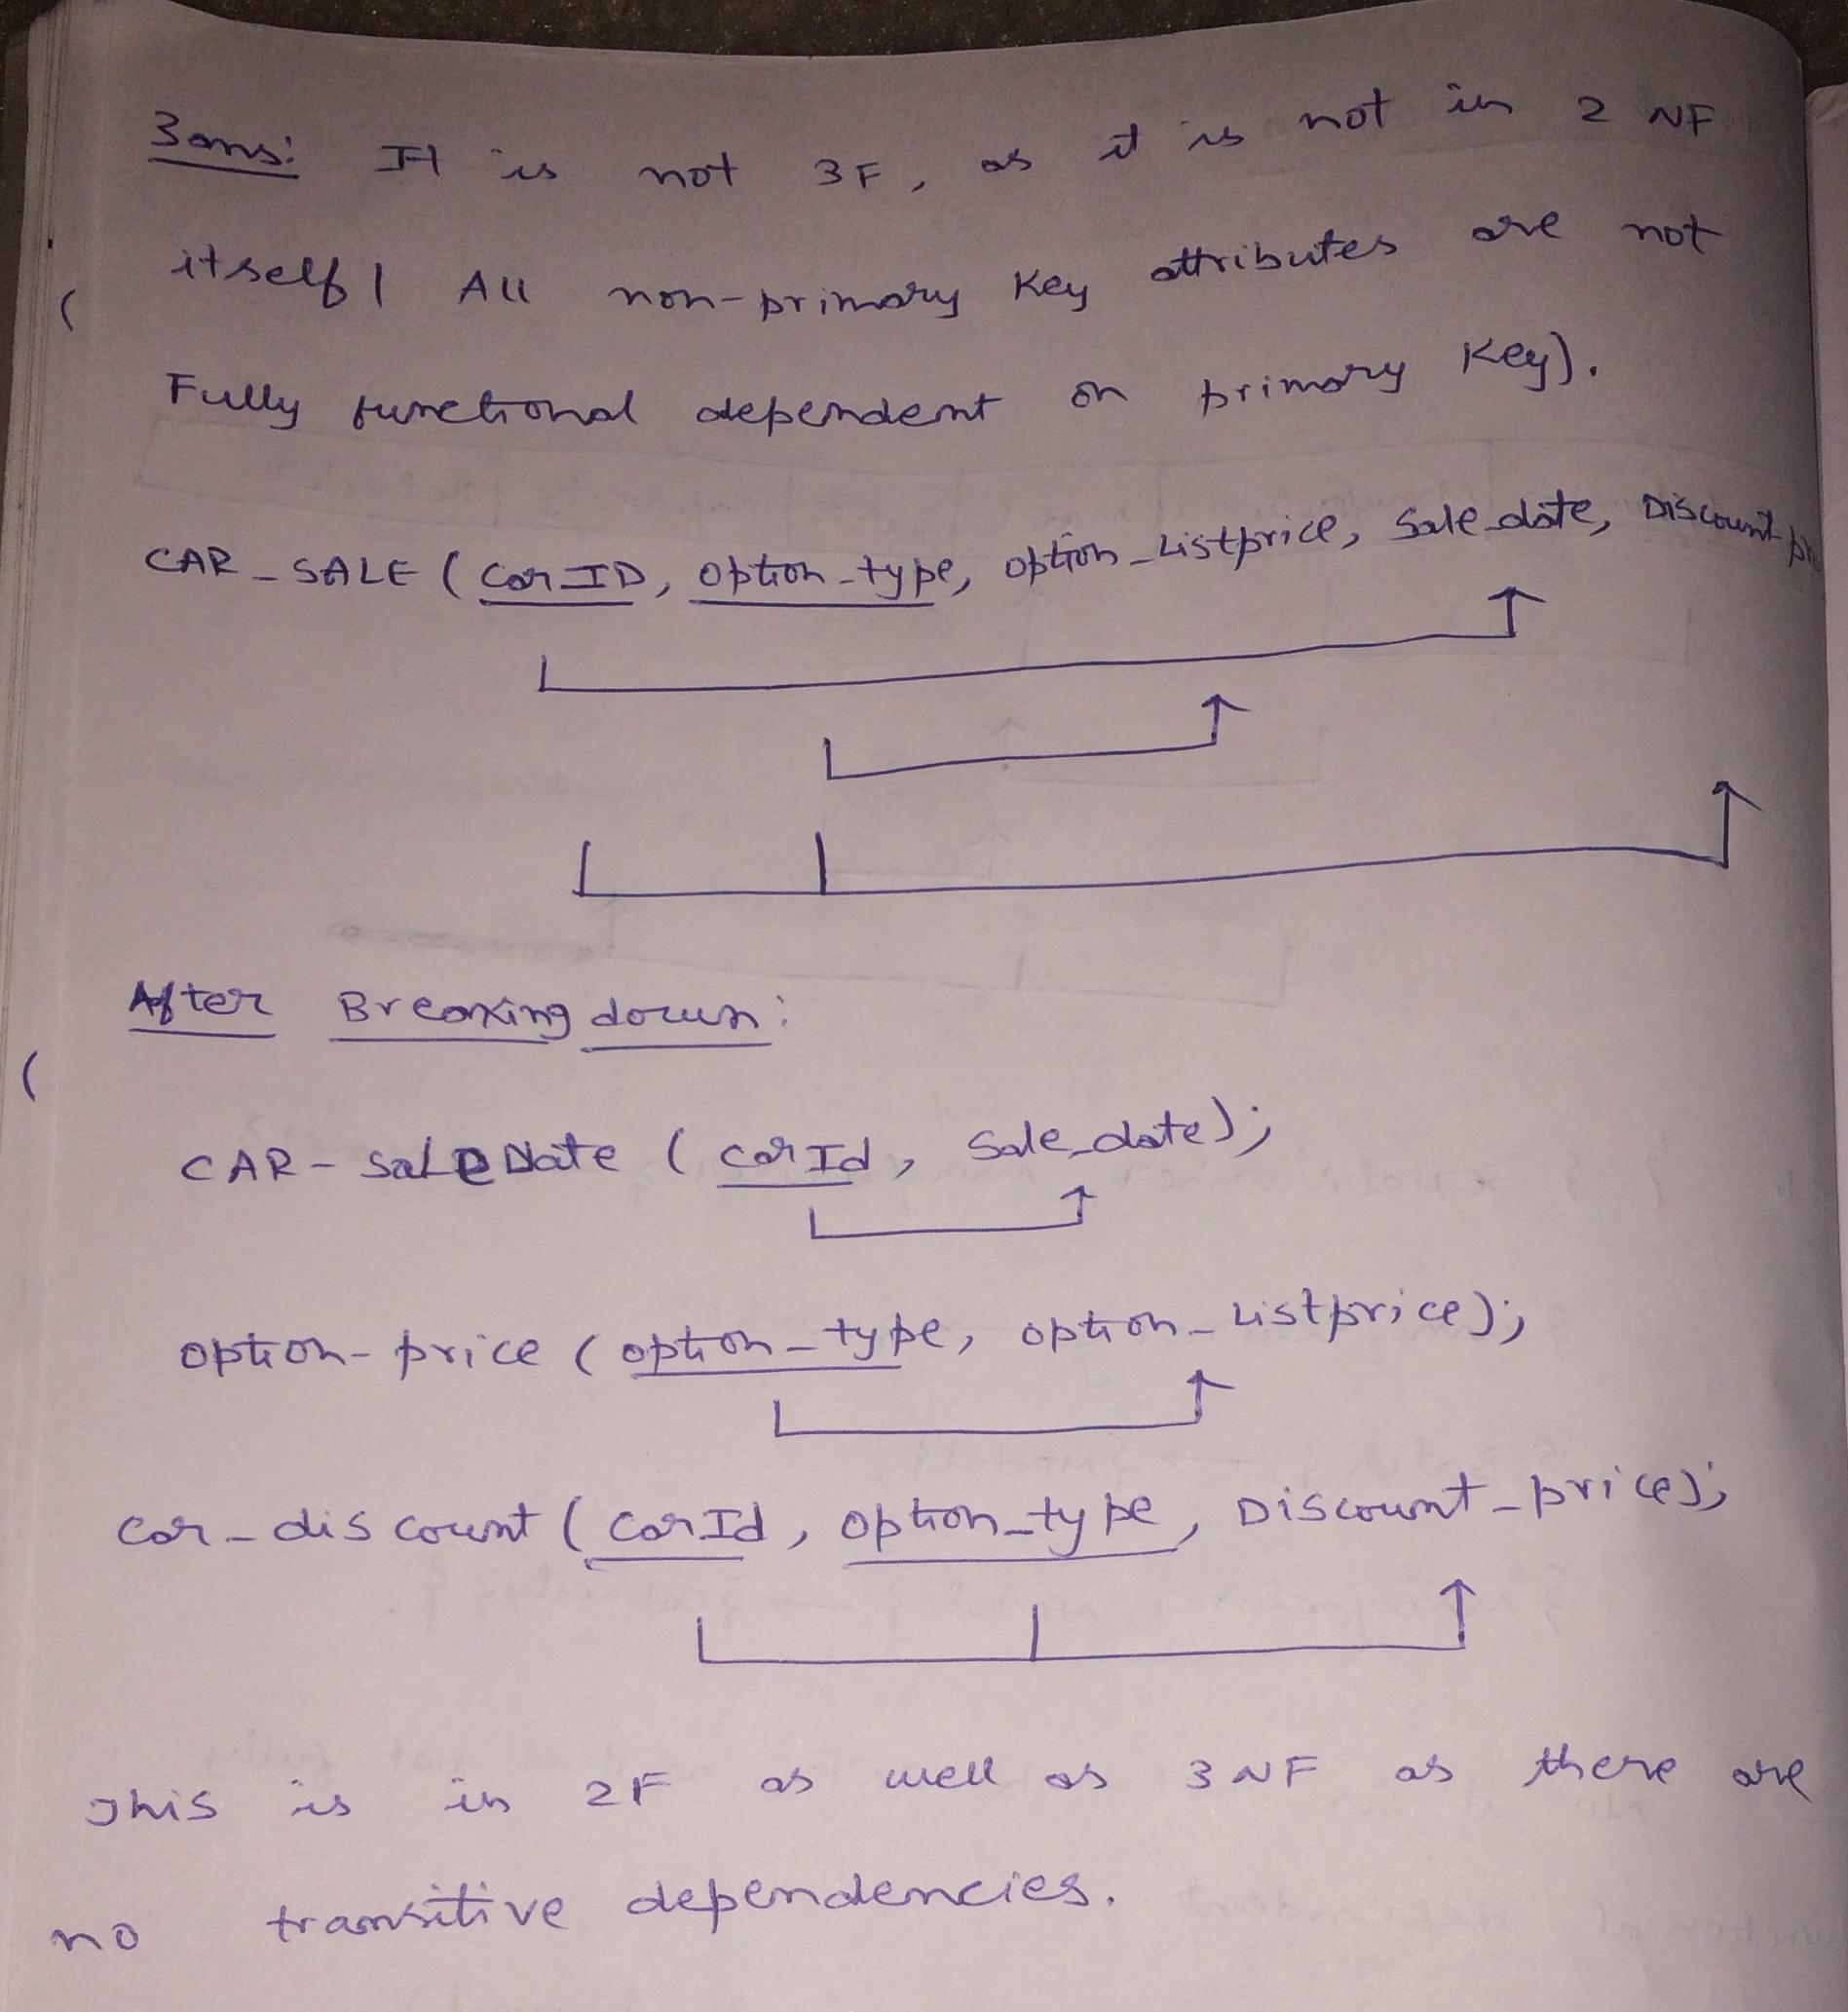 3ans: It is not 3F, as it is not in 2 NF
itself ( All non-primary Key attributes are not
Fully functional dependent on primary Key).
CAR_SALE ( Car ID, option_type, option_Listprice, Sale_date, Discount
After Breaking down:
CAR-SaleDate ( CarId, Sale_date);
option-price ( option_type, option_Listprice);
Car_discount ( CarId, option_type, Discount_price);
This is in 2F as well as 3NF as there are
no transitive dependencies.